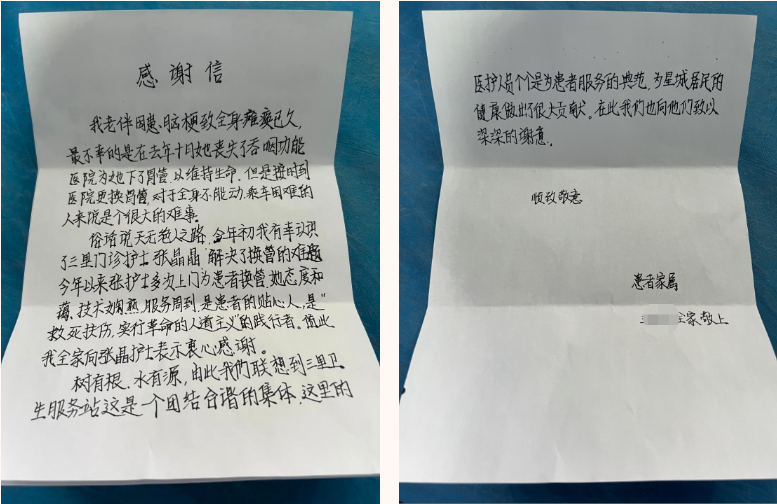 感谢信
我老伴因患脑梗致全身瘫痪已久,
最不幸的是在去年十月她丧失了吞咽功能
医院为她下了胃管以维持生命.但是按时到
医院更换胃管,对于全身不能动,乘车困难的
人来说是个很大的难事。
俗话说天无绝人之路,今年初我有幸认识
了三里门诊护士张晶晶 解决了换管的难题
今年以来张护士多次上门为患者换管,她态度和
蔼、技术娴熟,服务周到,是患者的贴心人,是"
救死扶伤,实行革命的人道主义"的践行者。值此
我全家向张晶护士表示衷心感谢。
树有根,水有源,由此我们联想到三里卫
生服务站这是一个团结合谐的集体,这里的
医护人员个个是为患者服务的典范,为星城居民的
健康做出了很大贡献。在此我们也向他们致以
深深的谢意.
顺致敬意
患者家属
全家敬上